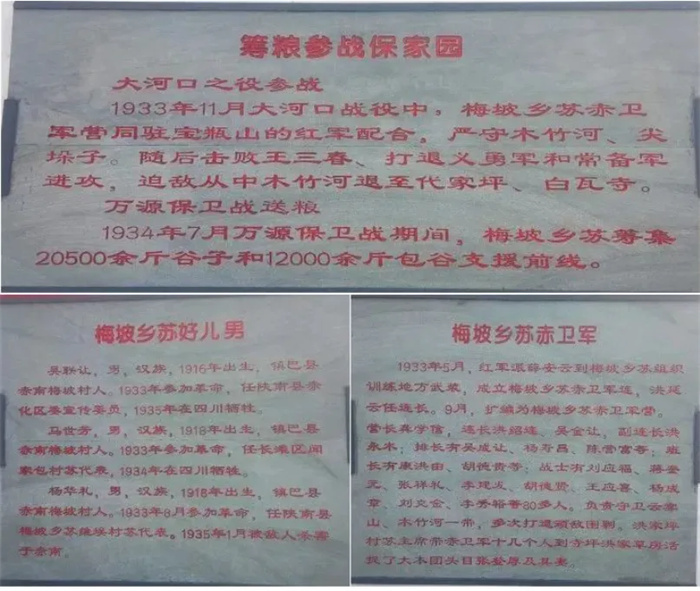 筹粮参战保家园
大河口之役参战
1933年11月大河口战役中，梅坡乡苏赤卫
军营同驻宝瓶山的红军配合，严守木竹河、尖
垛子。随后击败王三春、打退义勇军和常备军
进攻，追敌从中木竹河退至代家坪、白瓦寺。
万源保卫战送粮
1934年7月万源保卫战期间，梅坡乡苏筹集
20500余斤谷子和12000余斤包谷支援前线。
梅坡乡苏好儿男
吴联让，男，汉族，1915年出生，镇巴县
赤南梅坡村人。1933年参加革命，任陕南县赤
化区委宣传委员，1935年在四川牺牲。
马世芳，男，汉族，1918年出生，镇巴县
赤南梅坡村人。1933年参加革命，任长滩区闻
家包村苏代表，1934年在四川牺牲。
杨华礼，男，汉族，1918年出生，镇巴县
赤南梅坡村人。1933年8月参加革命，任陕南县
梅坡乡苏 村苏代表。1935年1月被敌人杀害
于赤南。
梅坡乡苏赤卫军
1933年5月，红军派薛安云到梅坡乡苏组织
训练地方武装，成立梅坡乡苏赤卫军连，洪廷
云任连长。9月，扩编为梅坡乡苏赤卫军营。
营长龚学信，连长洪绍连、吴金让，副连长洪
永术；排长有吴成让、杨寿昌、陈营富等；班
长有康洪由、胡德贵等；战士有刘应福、蒋登
元、张祥礼、李现发、胡德贤、王应喜、杨成
章、刘克会、李秀裕等80多人。负责守卫云
山、木竹河一带，多次打退顽敌围剿。洪家坪
村苏主席带赤卫军十几个人到寺坪洪家 房活
捉了大本团头目张登 及其妻。